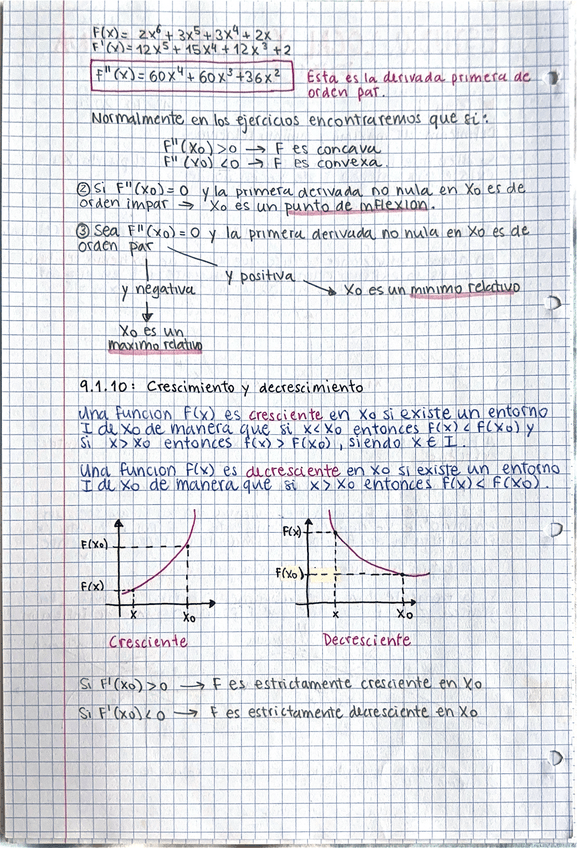 F(x) = 2x⁶ + 3x⁵ + 3x⁴ + 2x
F'(x) = 12x⁵ + 15x⁴ + 12x³ + 2
F''(x) = 60x⁴ + 60x³ + 36x² Esta es la derivada primera de
orden par.
Normalmente en los ejercicios encontraremos que si:
F''(x₀) > 0 → F es concava
F''(x₀) < 0 → F es convexa.
② Si F''(x₀) = 0 y la primera derivada no nula en x₀ es de
orden impar → x₀ es un punto de inflexion.
③ Sea F''(x₀) = 0 y la primera derivada no nula en x₀ es de
orden par
y positiva
y negativa
x₀ es un minimo relativo
x₀ es un
maximo relativo
9.1.10: Crescimiento y decrescimiento
Una funcion F(x) es cresciente en x₀ si existe un entorno
I de x₀ de manera que si x < x₀ entonces F(x) < F(x₀) y
si x > x₀ entonces f(x) > F(x₀), siendo x ∈ I.
Una funcion F(x) es decresciente en x₀ si existe un entorno
I de x₀ de manera que si x > x₀ entonces f(x) < F(x₀).
F(x₀)
F(x)
x x₀
Cresciente
F(x)
F(x₀)
x x₀
Decresciente
Si F'(x₀) > 0 → F es estrictamente cresciente en x₀
Si F'(x₀) < 0 → F es estrictamente decresciente en x₀